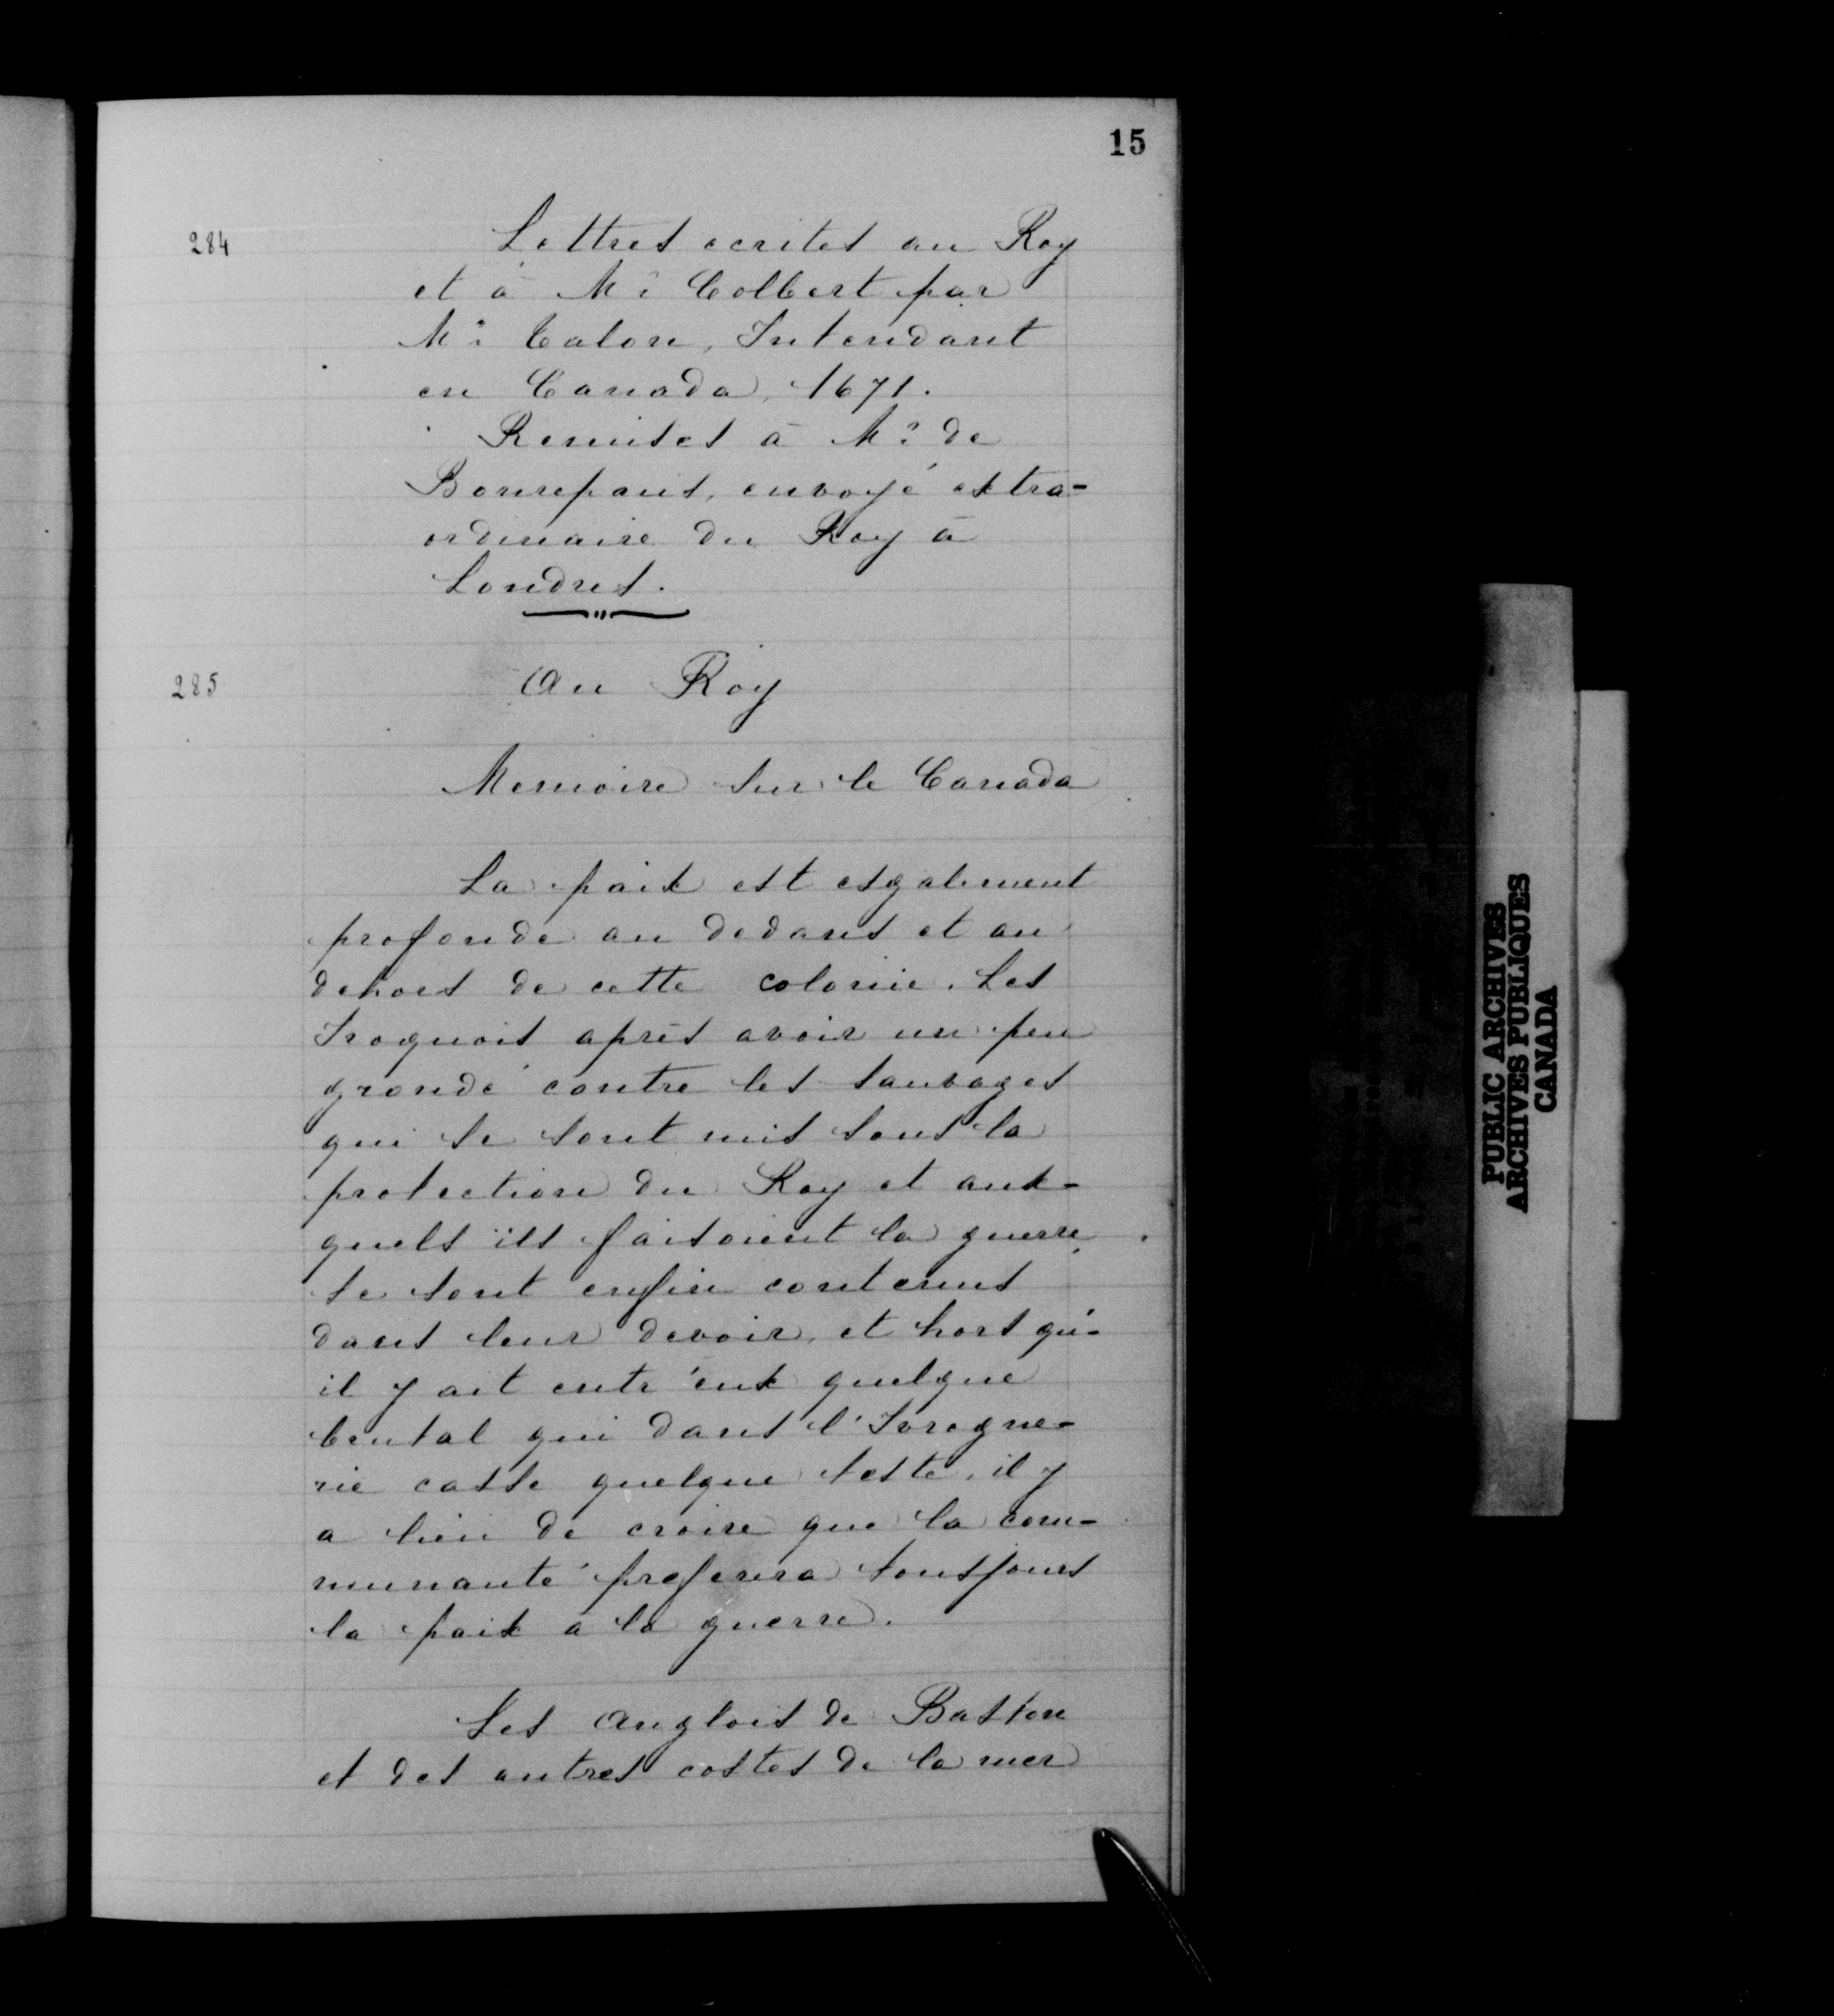 15
284
Lettres ecrites au Roy
et à Mr. Colbert par
Mr. Talon, Intendant
en Canada, 1671.
Remises à Mr. de
Bonrepaus, envoyé extra-
ordinaire du Roy à
Londres.
285
Au Roy
Memoire sur le Canada
La paix est esgalement
profonde au dedans et au
dehors de cette colonie. Les
Iroquois après avoir un peu
grondé contre les sauvages
qui se sont mis sous la
protection du Roy et aux-
quels ils faisoient la guerre,
se sont enfin contenus
dans leur devoir, et hors qu'-
il y ait entr'eux quelque
brutal qui dans l'Ivrogne-
rie casse quelque teste, il y
a lieu de croire que la com-
munauté preferera tousjours
la paix a la guerre.
Les Anglois de Baston
et des autres costes de la mer
PUBLIC ARCHIVES
ARCHIVES PUBLIQUES
CANADA